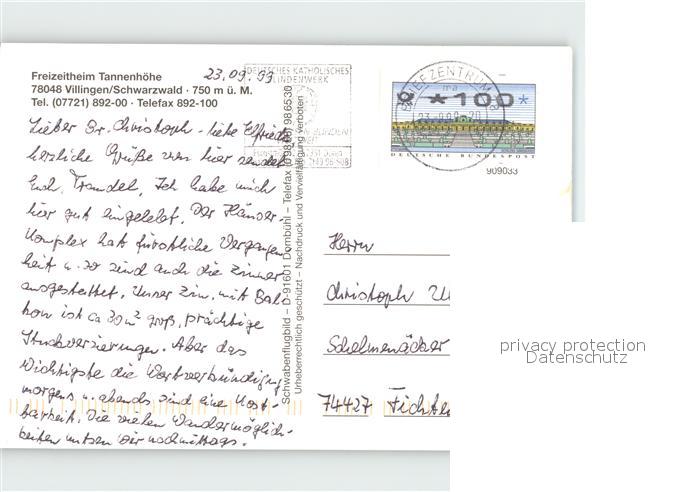 Freizeitheim Tannenhöhe
78048 Villingen/Schwarzwald · 750 m ü. M.
Tel. (07721) 892-00 · Telefax 892-100
23.09.99
Lieber Br. Christoph - liebe Elfriede
herzliche Grüße von hier sendet
Euch, Traudel. Ich habe mich
hier gut eingelebt. Der Häuser-
Komplex hat fürstliche Vergangen
heit u. so sind auch die Zimmer
ausgestattet. Unser Zim. mit Bal-
kon ist ca 30 m² groß, prächtige
Stuckverzierungen. Aber das
Wichtigste die Wortverkündigung
morgens u. abends sind eine Kost-
barkeit. Die vielen Wandermöglich-
keiten nutzen wir nachmittags.
Schwabenflugbild – D-91601 Dombühl – Telefax (09868) 986530
Urheberrechtlich geschützt – Nachdruck und Vervielfältigung verboten
DEUTSCHES KATHOLISCHES
BLINDENWERK
BRIEFZENTRUM
*100*
DEUTSCHE BUNDESPOST
909033
Herrn
Christoph
Schelmenäcker
74427 Fichten
privacy protection
Datenschutz